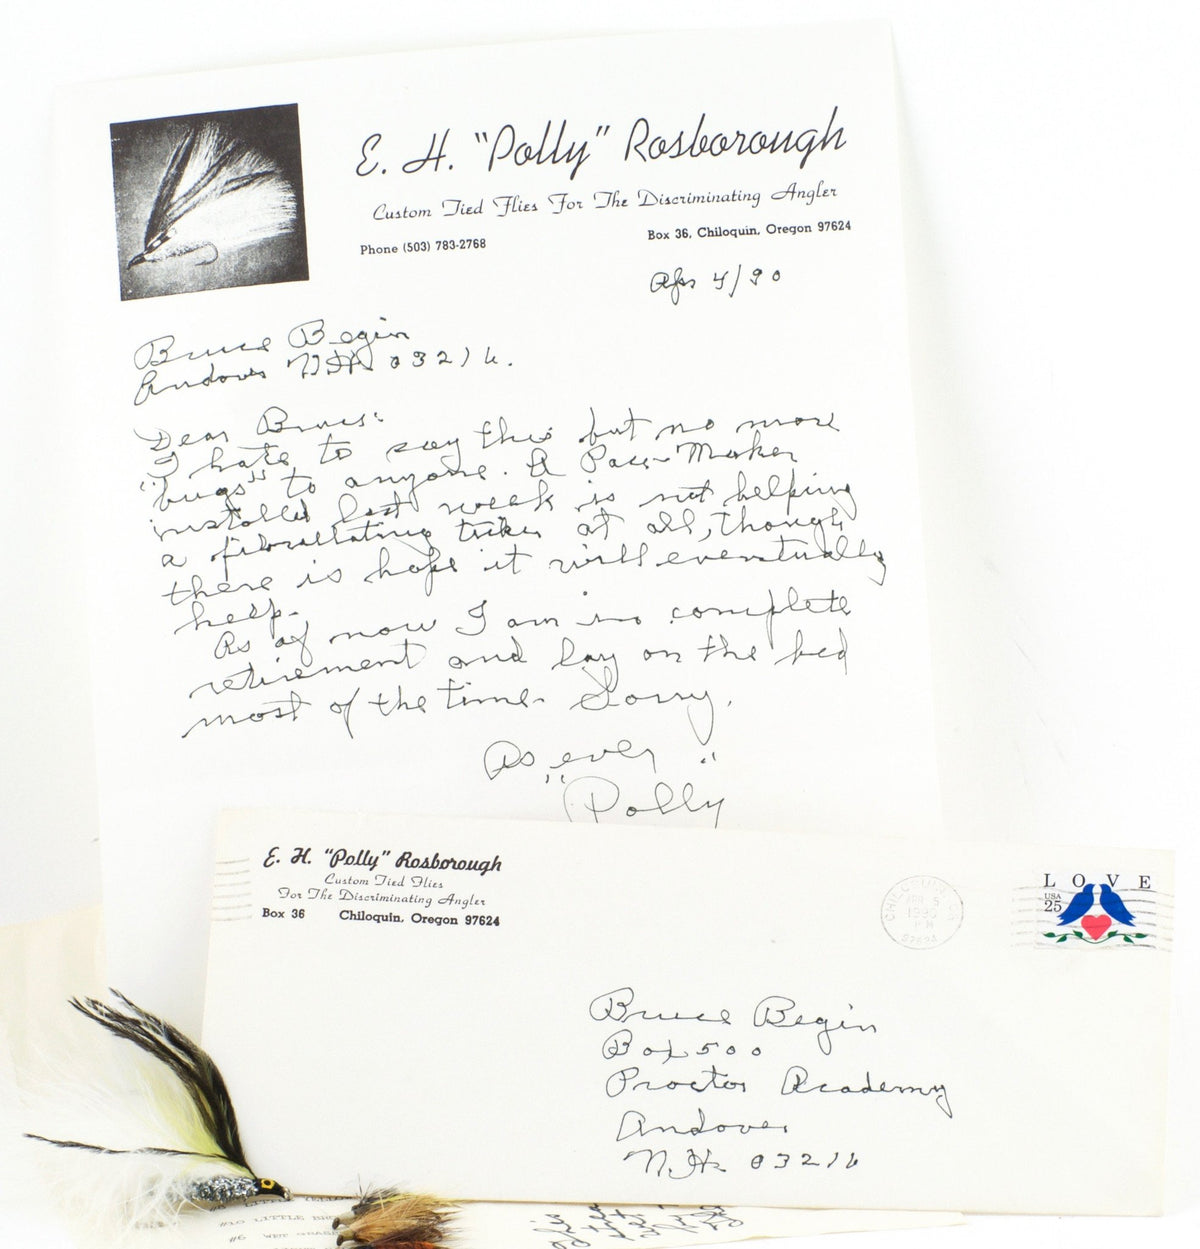 E. H. "Polly" Rosborough
Custom Tied Flies For The Discriminating Angler
Phone (503) 783-2768
Box 36, Chiloquin, Oregon 97624
Apr 4/90
Bruce Begin
Andover N.H. 03216.
Dear Bruce:
I hate to say this but no more
"bugs" to anyone. A Pace-Maker
installed last week is not helping
a fibrullating ticker at all, though
there is hope it will eventually
help.
As of now I am in complete
retirement and lay on the bed
most of the time. Sorry.
As ever
"Polly"
E. H. "Polly" Rosborough
Custom Tied Flies
For The Discriminating Angler
Box 36 Chiloquin, Oregon 97624
CHILOQUIN, OR
APR 5
1990
PM
97624
LOVE
USA
25
Bruce Begin
Box 500
Proctor Academy
Andover
N.H. 03216
#10 LITTLE
#6 WET